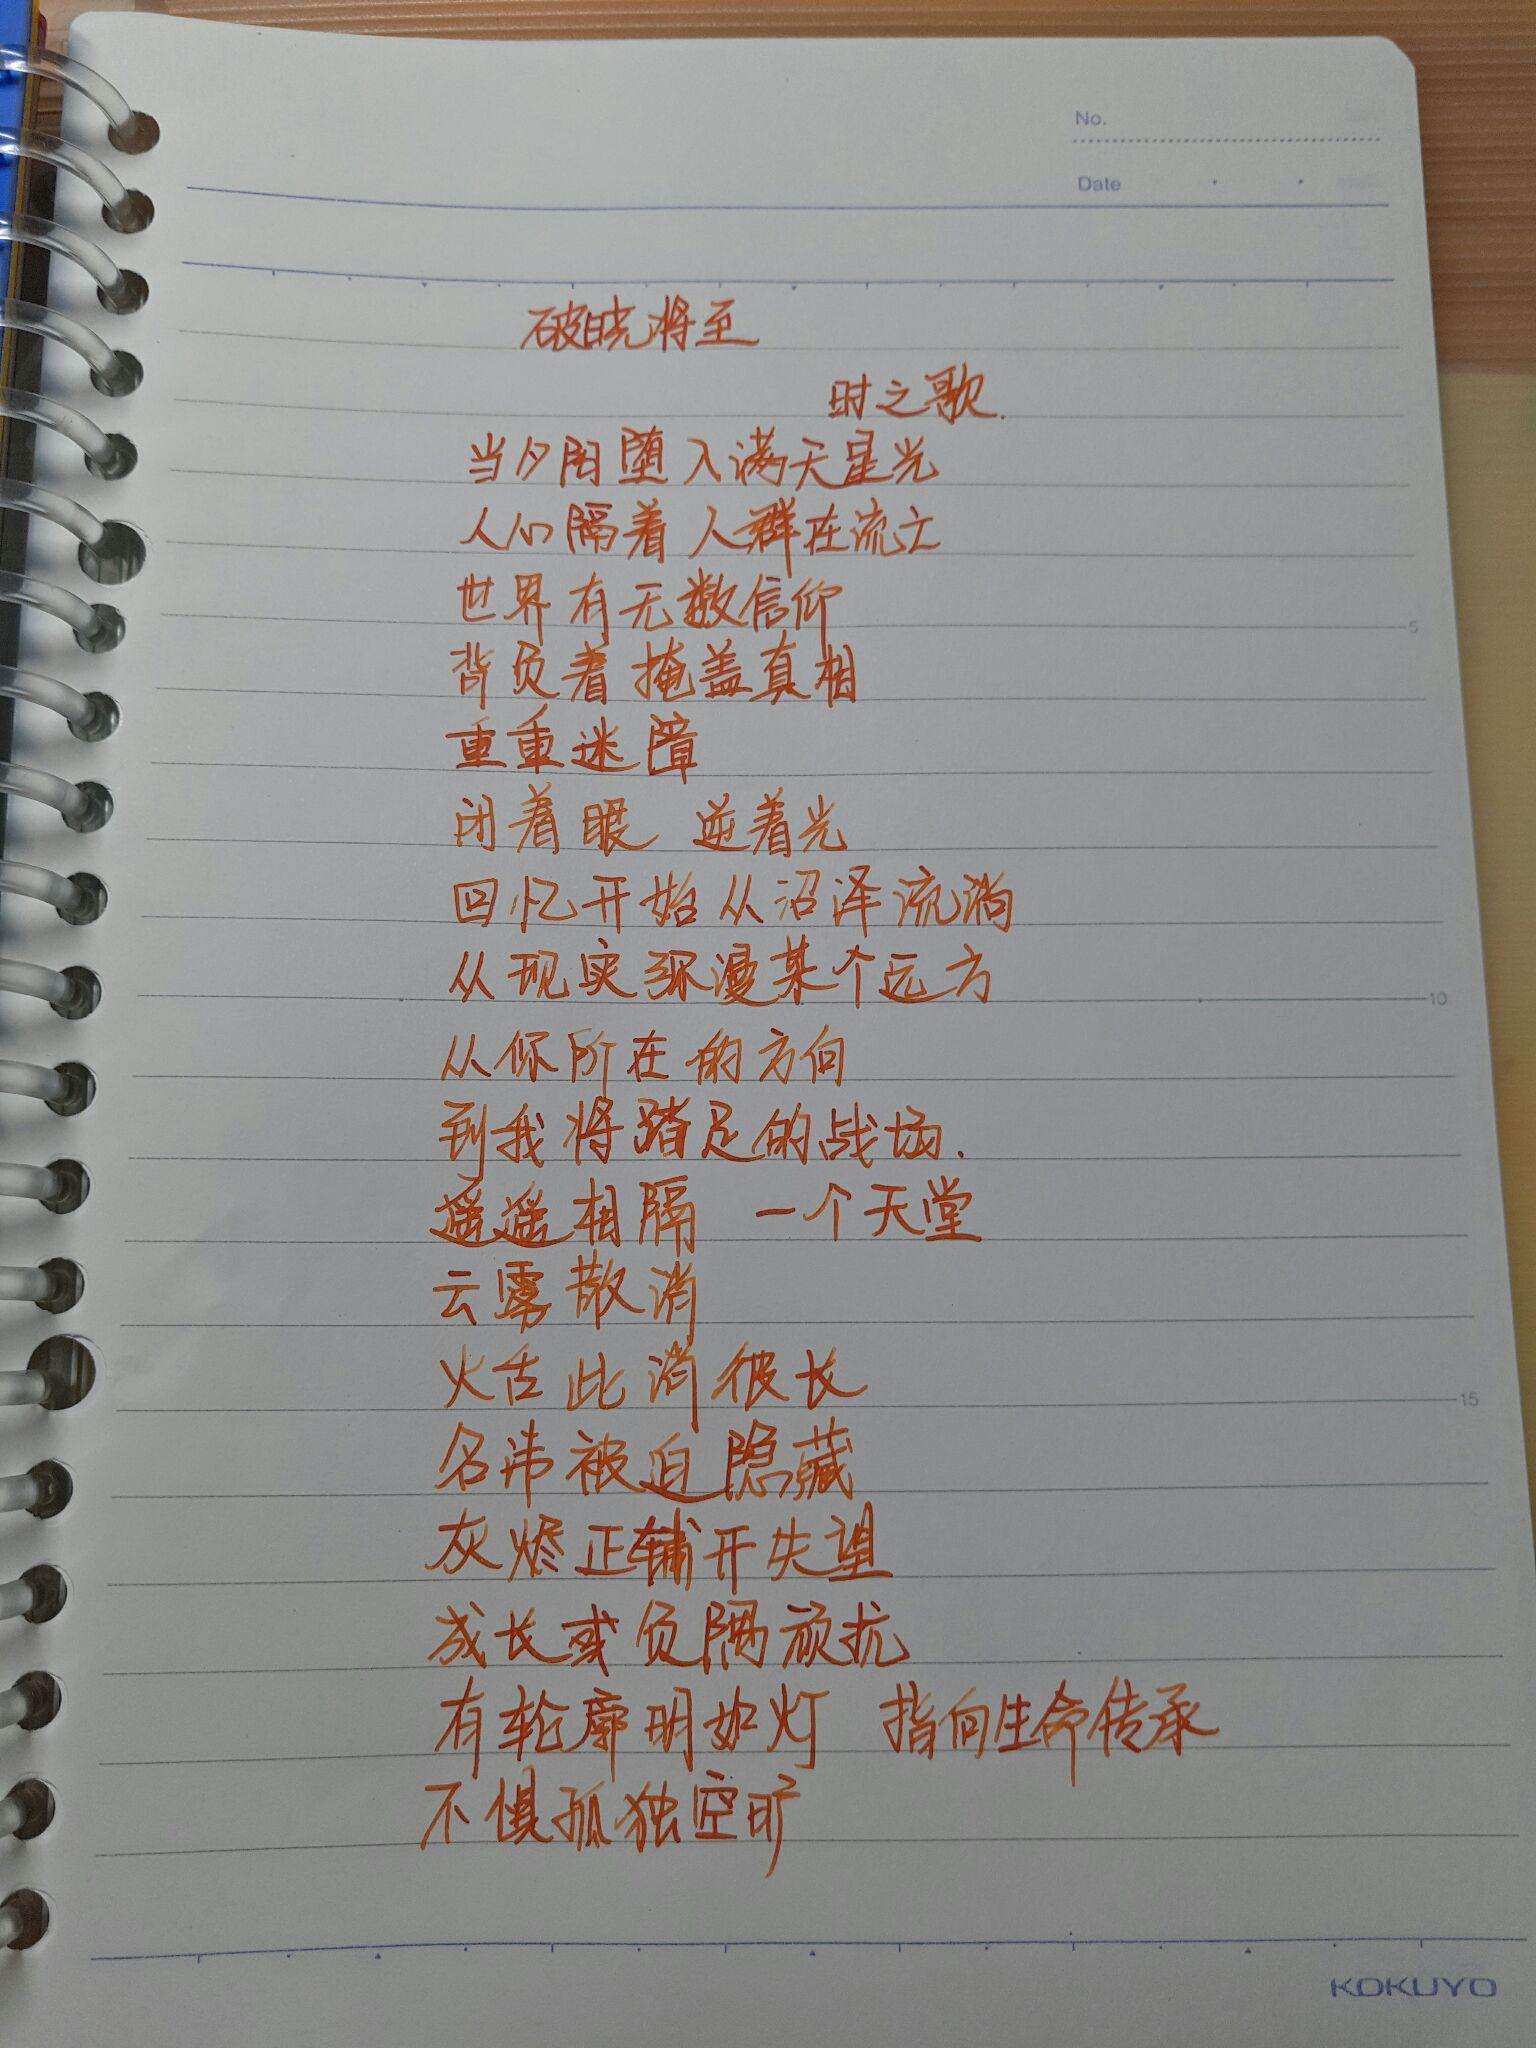 No.
Date
破晓将至
时之歌.
当夕阳堕入满天星光
人心隔着人群在流亡
世界有无数信仰
背负着掩盖真相
重重迷障
闭着眼 逆着光
回忆开始从沼泽流淌
5
从现实弥漫某个远方
10
从你所在的方向
到我将踏足的战场.
遥遥相隔 一个天堂
云雾散消
火舌此消彼长
15
名讳被迫隐藏
灰烬正辅开失望
成长或负隅顽抗
有轮廓明如灯 指向生命传承
不惧孤独空旷
KOKUYO